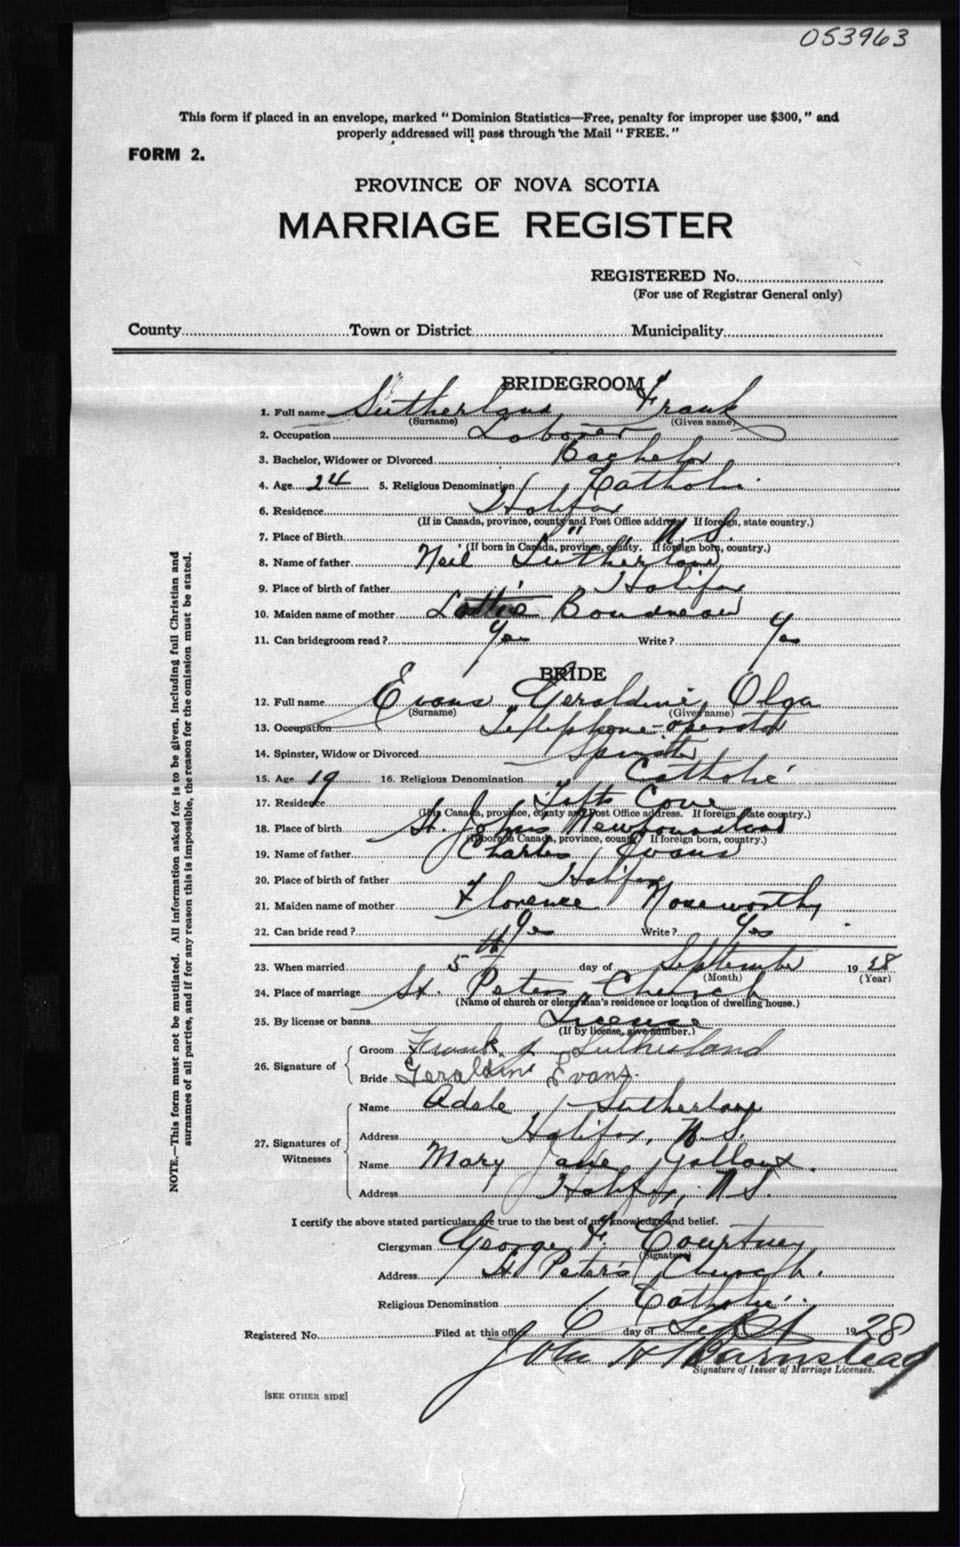 053963
This form if placed in an envelope, marked “ Dominion Statistics—Free, penalty for improper use $300, ” and
properly addressed will pass through the Mail “ FREE. ”
FORM 2.
PROVINCE OF NOVA SCOTIA
MARRIAGE REGISTER
REGISTERED No.
(For use of Registrar General only)
County Town or District Municipality
BRIDEGROOM
1. Full name Sutherland Frank
(Surname) (Given name)
2. Occupation Laborer
3. Bachelor, Widower or Divorced Bachelor
4. Age 24 5. Religious Denomination Catholic
6. Residence Halifax
(If in Canada, province, county and Post Office address. If foreign, state country.)
7. Place of Birth " N. S.
(If born in Canada, province, county. If foreign born, country.)
8. Name of father Neil Sutherland
9. Place of birth of father Halifax
10. Maiden name of mother Boudreau
11. Can bridegroom read ? Yes Write ? Yes
BRIDE
12. Full name Evans Geraldine Olga
(Surname) (Given name)
13. Occupation Telephone-operator
14. Spinster, Widow or Divorced Spinster
15. Age 19 16. Religious Denomination Catholic
17. Residence Tufts Cove
(If in Canada, province, county and Post Office address. If foreign, state country.)
18. Place of birth St. Johns Newfoundland
(If born in Canada, province, county. If foreign born, country.)
19. Name of father Charles Evans
20. Place of birth of father Halifax
21. Maiden name of mother Florence Noseworthy
22. Can bride read ? Yes Write ? Yes
23. When married 5th day of September 1928
(Month) (Year)
24. Place of marriage St. Peters Church
(Name of church or clergyman's residence or location of dwelling house.)
25. By license or banns License
(If by license, give number.)
26. Signature of
Groom Frank Sutherland
Bride Geraldine Evans.
27. Signatures of Witnesses
Name Adele Sutherland
Address Halifax, N. S.
Name Mary Jane
Address Halifax, N. S.
I certify the above stated particulars are true to the best of my knowledge and belief.
Clergyman George F. Courtney
(Signature)
Address St Peter's Church.
Religious Denomination Catholic
Registered No. Filed at this office 6 day of Sept 1928
John H Barnstead
Signature of Issuer of Marriage Licenses.
[SEE OTHER SIDE]
NOTE.—This form must not be mutilated. All information asked for is to be given, including full Christian and
surnames of all parties, and if for any reason this is impossible, the reason for the omission must be stated.